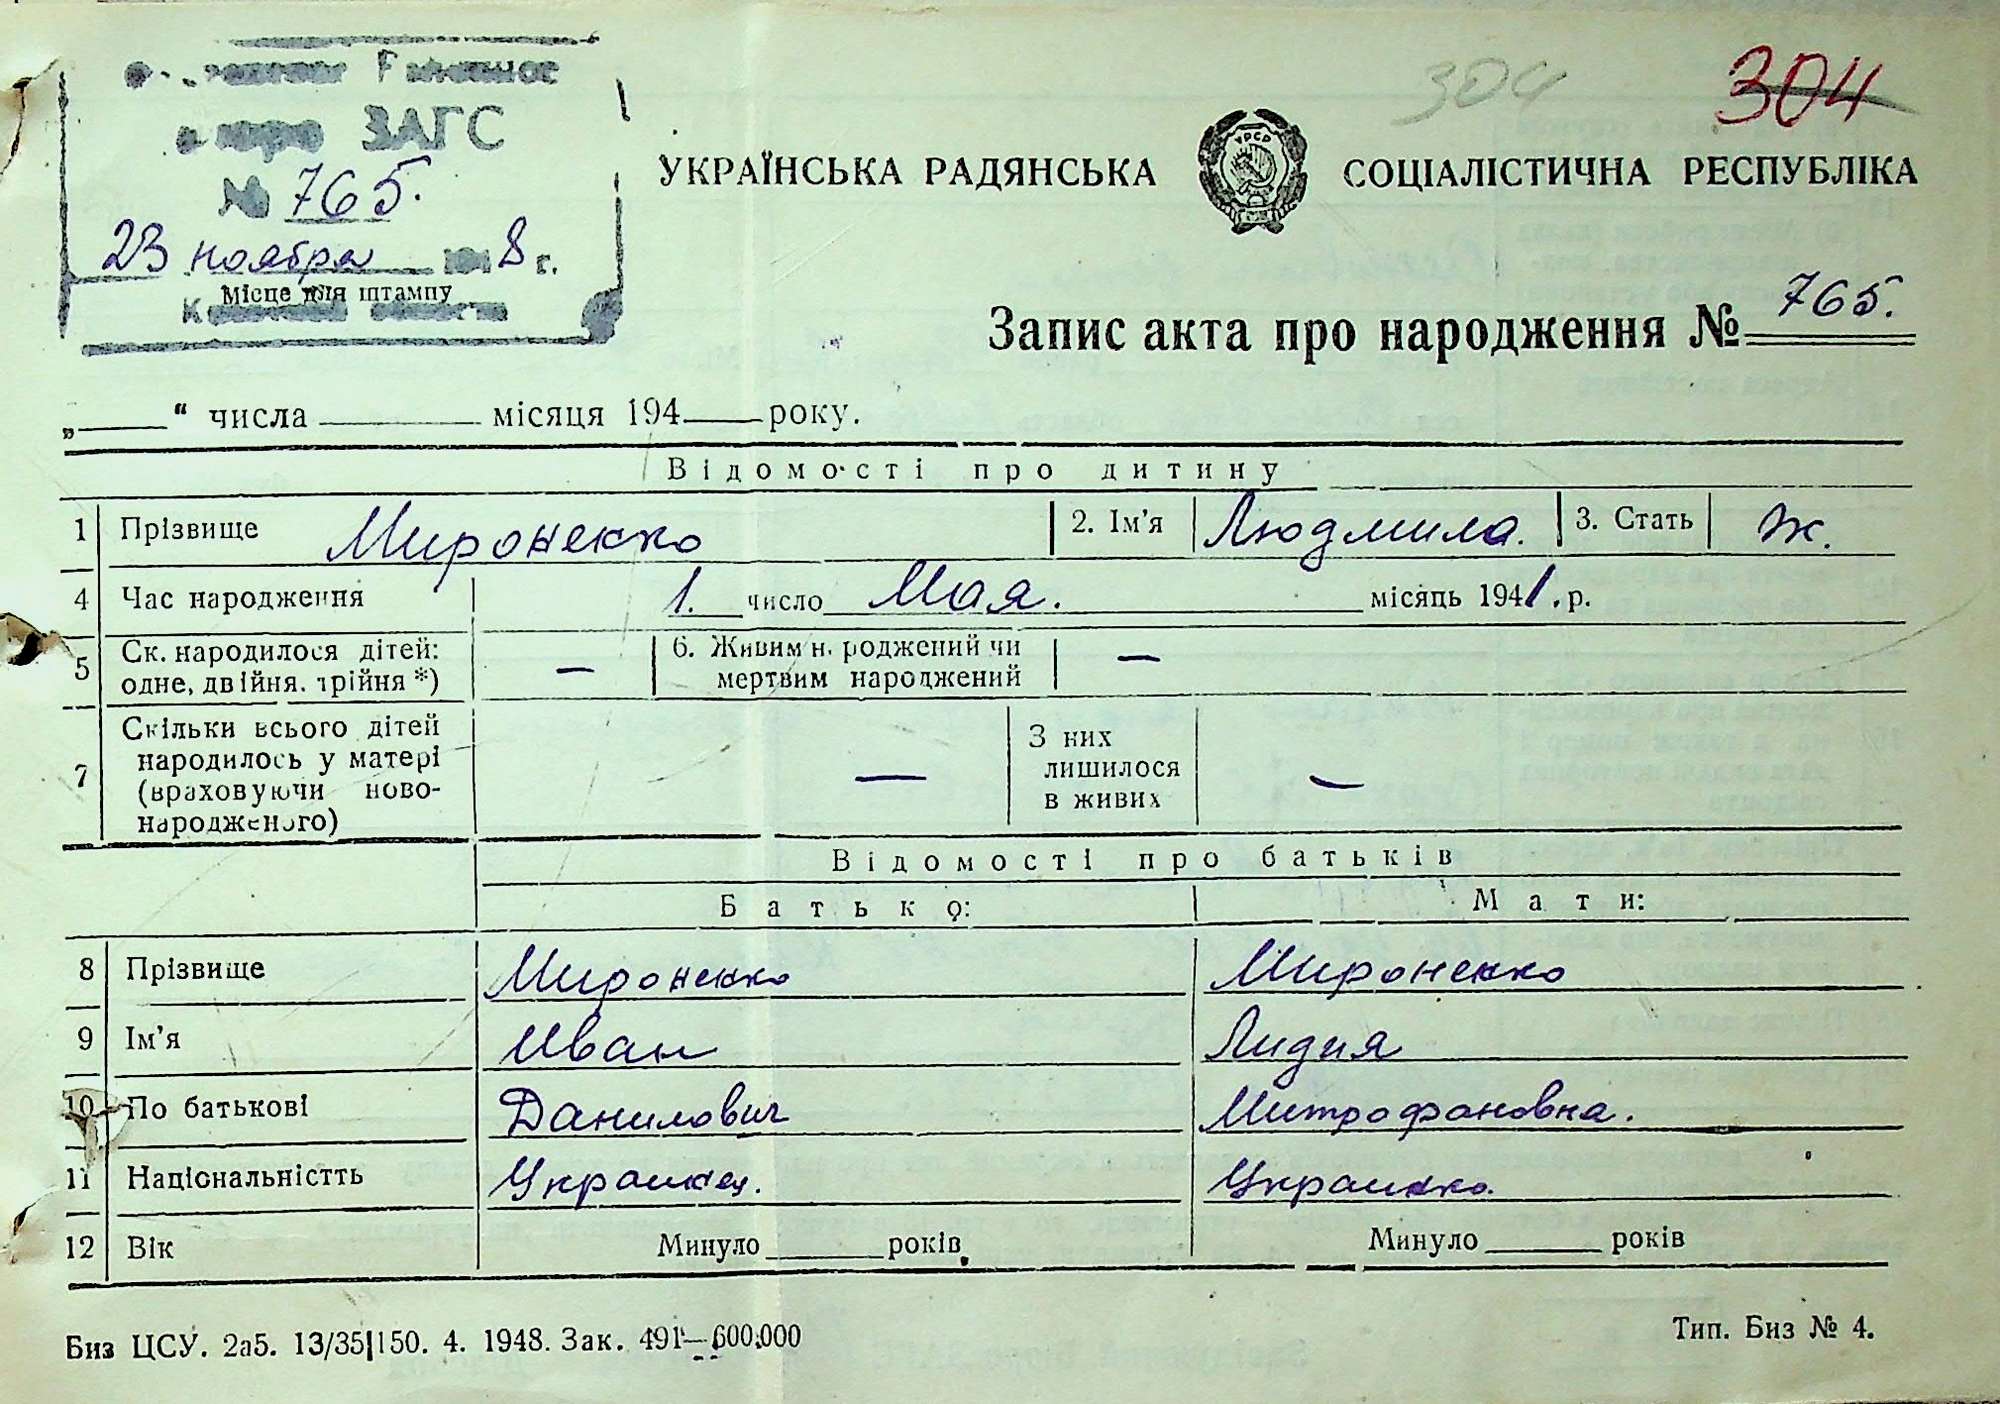 304 304
ЗАГС
№ 765.
23 ноября 1948 г.
Місце для штампу
УКРАЇНСЬКА РАДЯНСЬКА СОЦІАЛІСТИЧНА РЕСПУБЛІКА
УРСР
Запис акта про народження № 765.
„____“ числа ____ місяця 194__ року.
Відомості про дитину
1 Прізвище Мироненко 2. Ім'я Людмила. 3. Стать Ж.
4 Час народження 1. число Мая. місяць 1941. р.
5 Ск. народилося дітей: одне, двійня, трійня *) — 6. Живим н. роджений чи мертвим народжений —
7 Скільки всього дітей народилось у матері (враховуючи ново-народженого) — З них лишилося в живих —
Відомості про батьків
Батько: Мати:
8 Прізвище Мироненко Мироненко
9 Ім'я Иван Лидия
10 По батькові Данилович Митрофановна.
11 Національністть Украинец. Украинка.
12 Вік Минуло ____ років. Минуло ____ років
Биз ЦСУ. 2а5. 13/35|150. 4. 1948. Зак. 491—600.000 Тип. Биз № 4.